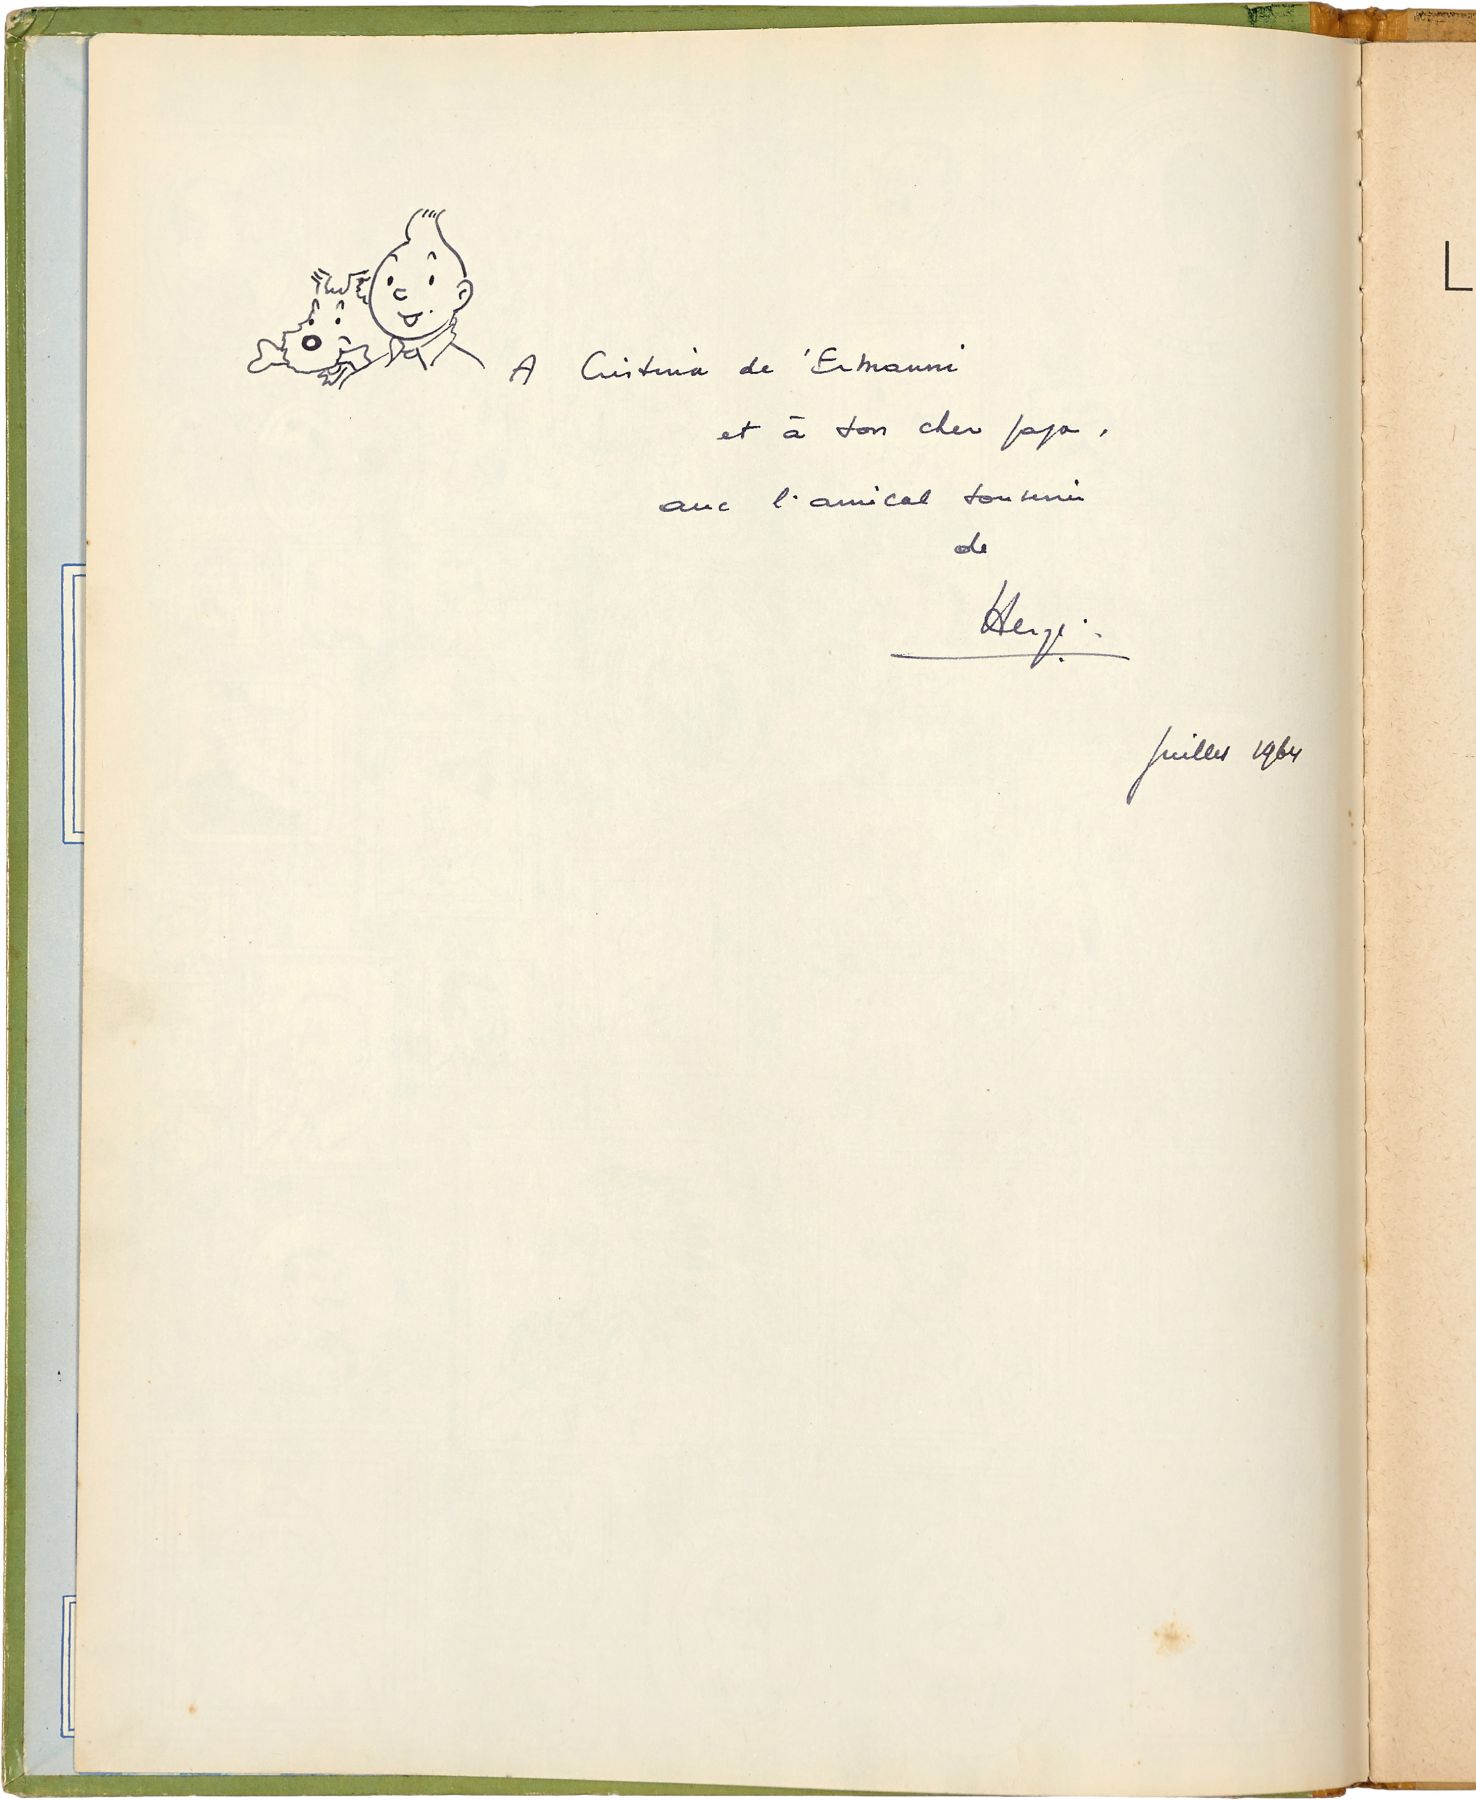 A Cristina de 'Ermanni
et à son cher papa,
avec l'amical souvenir
de
Hergé.
Juillet 1964
L